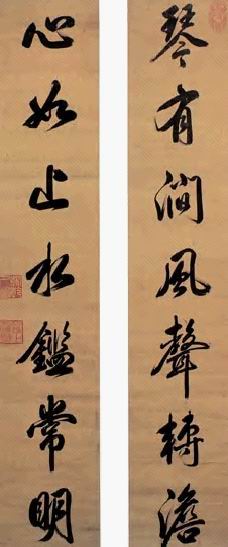 琴有澗風聲轉澹
心如止水鑑常明